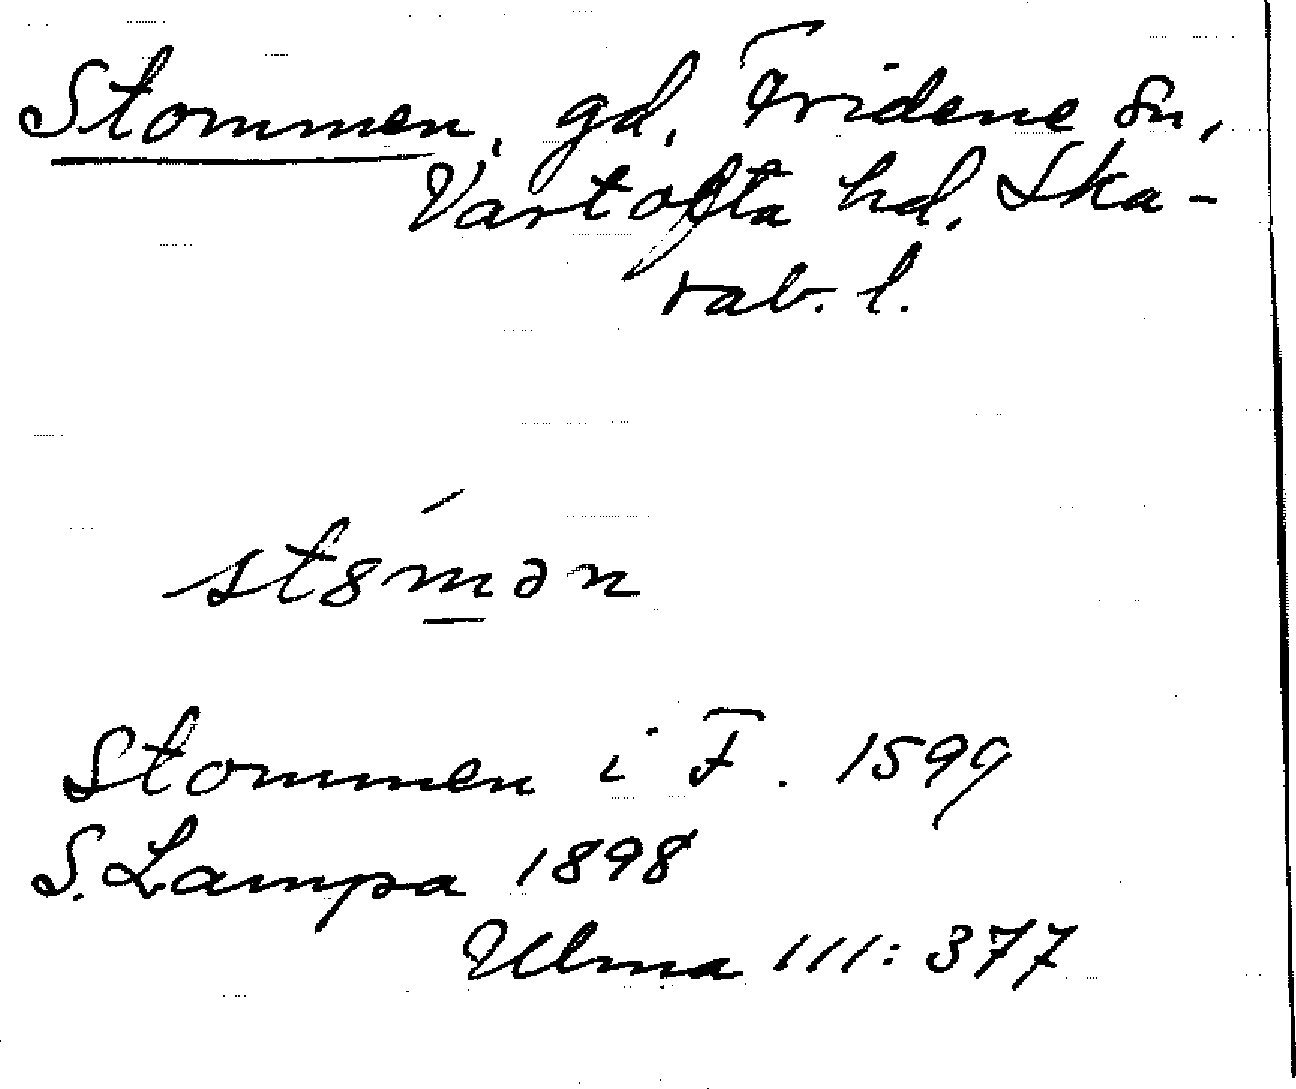 Stommen, gd. Fridene sn,
Vartofta hd. Ska-
rab. l.
st8́mən
Stommen i F. 1599
S. Lampa 1898
Ulma III: 377